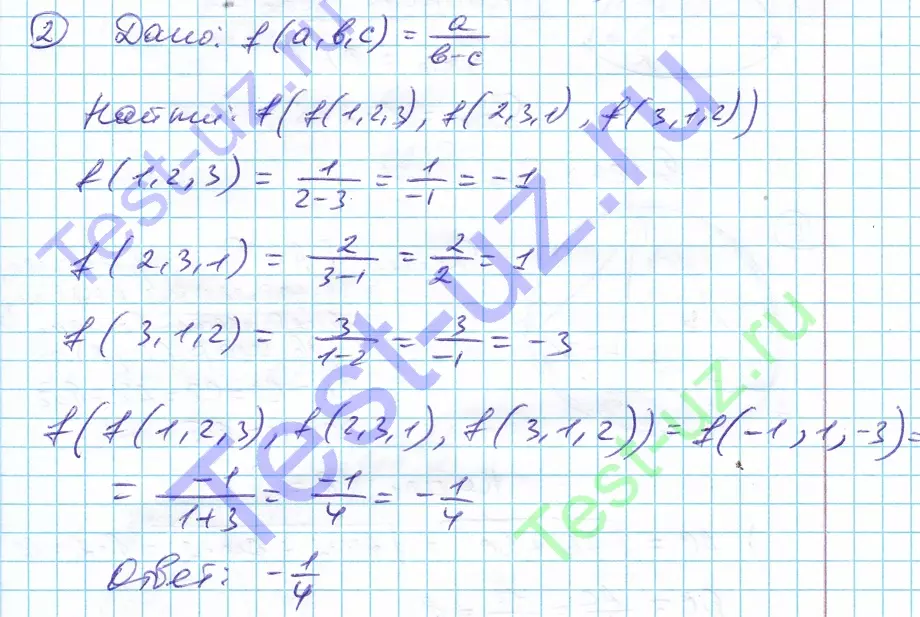 ② Дано: f(a,b,c) = a/(b-c)
Найти: f(f(1,2,3), f(2,3,1), f(3,1,2))
f(1,2,3) = 1/(2-3) = 1/-1 = -1
f(2,3,1) = 2/(3-1) = 2/2 = 1
f(3,1,2) = 3/(1-2) = 3/-1 = -3
f(f(1,2,3), f(2,3,1), f(3,1,2)) = f(-1,1,-3) =
= -1/(1+3) = -1/4 = -1/4
Ответ: -1/4
Test-uz.ru
Test-uz.ru
Test-uz.ru